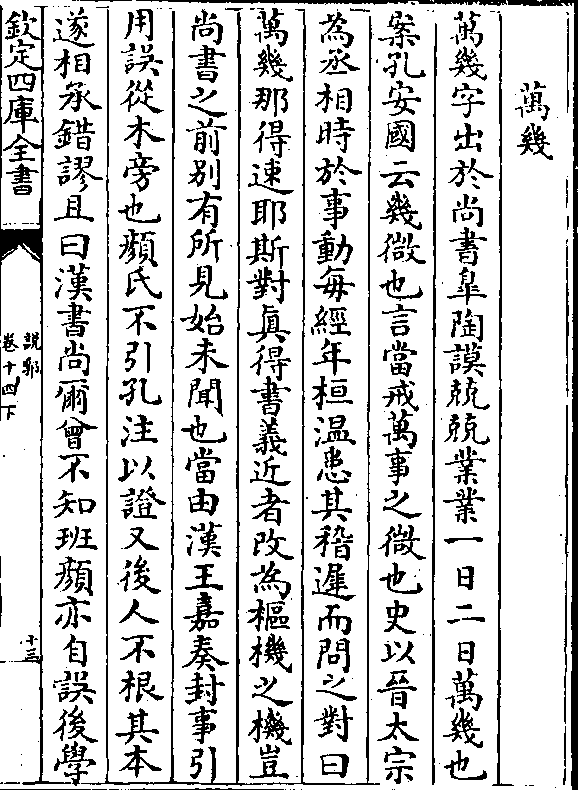 萬幾
萬幾字出於尚書臯陶謨兢兢業業一日二日萬幾也
案孔安國云幾微也言當戒萬事之微也史以晉太宗
為丞相時於事動每經年桓温患其稽遲而問之對曰
萬幾那得速耶斯對真得書義近者改為樞機之機豈
尚書之前别有所見始未聞也當由漢王嘉奏封事引
用誤從木旁也顔氏不引孔注以證又後人不根其本
遂相承錯謬且曰漢書尚爾曾不知班顔亦自誤後學
欽定四庫全書
説郛
卷十四下
十三